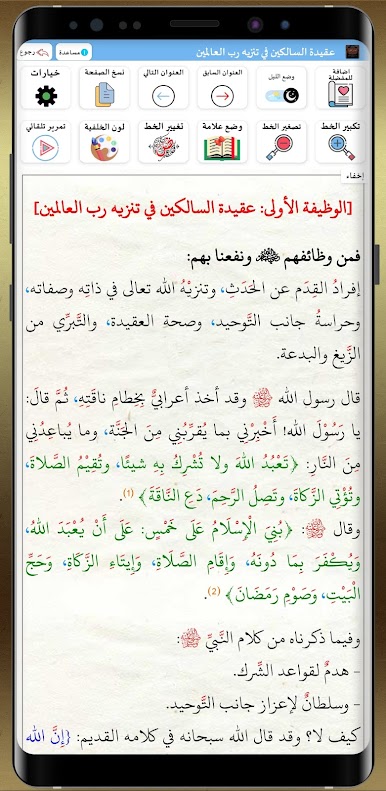 عقيدة السالكين في تنزيه رب العالمين
مساعدة
رجوع
اضافة للمفضلة
وضع الليل
العنوان السابق
العنوان التالي
نسخ الصفحة
خيارات
تكبير الخط
تصغير الخط
وضع علامة
تغيير الخط
لون الخلفية
تمرير تلقائي
إخفاء
[الوظيفة الأولى: عقيدة السالكين في تنزيه رب العالمين]
فمن وظائفهم ﷺ ونفعنا بهم:
إفرادُ القِدَم عن الحَدَثِ، وتنزيْهُ الله تعالى في ذاتِه وصفاته،
وحراسةُ جانب التَّوحيد، وصحةِ العقيدة، والتَّبرِّي من
الزَّيغ والبدعة.
قال رسول الله ﷺ وقد أخذ أعرابيٌّ بِخِطامِ ناقَتِهِ، ثُمَّ قالَ:
يا رَسُوْلَ الله! أَخْبِرْني بما يُقرِّبُني مِنَ الجَنَّة، وما يُباعِدُني
مِنَ النَّارِ: ﴿تَعْبُدُ اللهَ ولا تُشْرِكُ بهِ شيئًا، وتُقِيْمُ الصَّلاةَ،
وتُؤْتِي الزَّكاةَ، وتَصِلُ الرَّحِمَ، دَعِ النَّاقَةَ﴾ (1).
وقال ﷺ: ﴿بُنِيَ الْإِسْلَامُ عَلَى خَمْسٍ: عَلَى أَنْ يُعْبَدَ اللهُ،
وَيُكْفَرَ بِمَا دُونَهُ، وَإِقَامِ الصَّلَاةِ، وَإِيتَاءِ الزَّكَاةِ، وَحَجِّ
الْبَيْتِ، وَصَوْمِ رَمَضَانَ﴾ (2).
وفيما ذكرناه من كلام النَّبيِّ ﷺ:
- هدمٌ لقواعد الشِّرك.
- وسلطانٌ لإعزاز جانب التَّوحيد.
كيف لا؟ وقد قال الله سبحانه في كلامه القديم: {إِنَّ الله